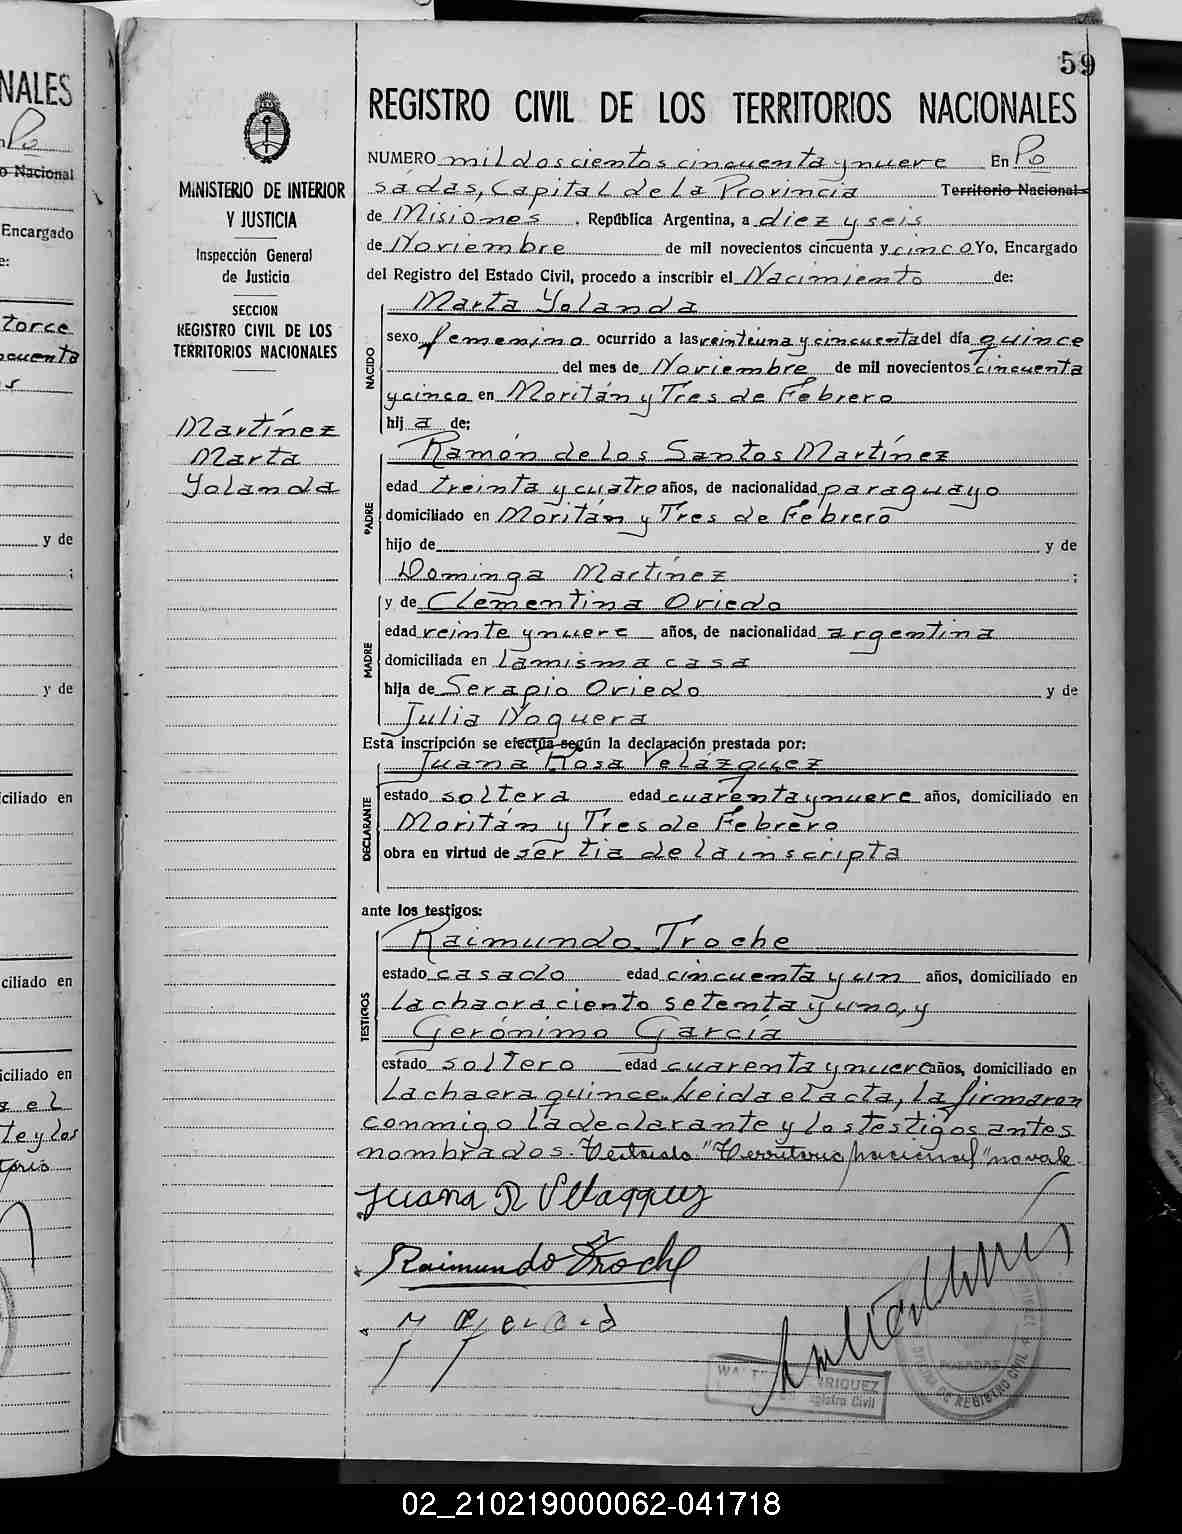 NALES
Po
o Nacional
Encargado
e:
torce
ncuenta
s
y de
;
y de
ciliado en
ciliado en
iciliado en
s el
te y los
torio
59
MINISTERIO DE INTERIOR
Y JUSTICIA
Inspección General
de Justicia
SECCION
REGISTRO CIVIL DE LOS
TERRITORIOS NACIONALES
Martínez
Marta
Yolanda
REGISTRO CIVIL DE LOS TERRITORIOS NACIONALES
NUMERO mil doscientos cincuenta y nueve En Po
sadas, Capital de la Provincia Territorio Nacional
de Misiones, República Argentina, a diez y seis
de Noviembre de mil novecientos cincuenta y cinco Yo, Encargado
del Registro del Estado Civil, procedo a inscribir el Nacimiento de:
Marta Yolanda
NACIDO
sexo femenino ocurrido a las veintiuna y cincuenta del día quince
del mes de Noviembre de mil novecientos cincuenta
y cinco en Moritán y Tres de Febrero
hij a de:
Ramón de los Santos Martínez
PADRE
edad treinta y cuatro años, de nacionalidad paraguayo
domiciliado en Moritán y Tres de Febrero
hijo de y de
Dominga Martínez ;
y de Clementina Oviedo
MADRE
edad veinte y nueve años, de nacionalidad argentina
domiciliada en la misma casa
hija de Serapio Oviedo y de
Julia Noguera
Esta inscripción se efectúa según la declaración prestada por:
Juana Rosa Velázquez
DECLARANTE
estado soltera edad cuarenta y nueve años, domiciliado en
Moritán y Tres de Febrero
obra en virtud de ser tia de la inscripta
ante los testigos:
Raimundo Troche
TESTIGOS
estado casado edad cincuenta y un años, domiciliado en
la chacra ciento setenta y uno, y
Gerónimo García
estado soltero edad cuarenta y nueve años, domiciliado en
La chacra quince. Leida el acta, la firmaron
conmigo la declarante y los testigos antes
nombrados. Testado "Territorio Nacional" no vale
Juana R Velazquez
Raimundo Troche
WA RIQUEZ
egistro Civil
POSADAS
DE REGISTRO CIVIL
02_210219000062-041718